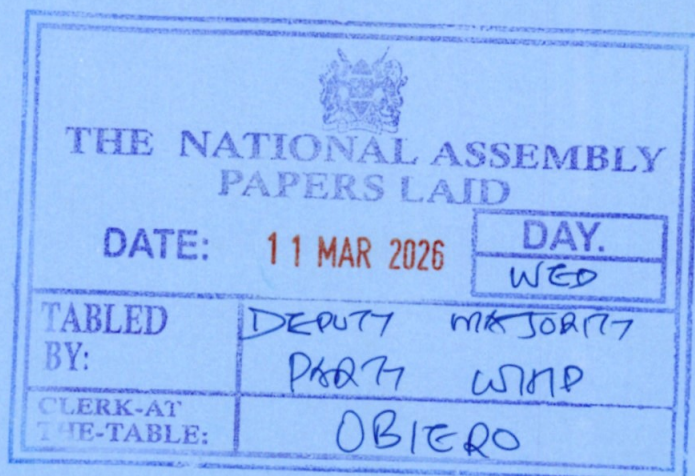 THE NATIONAL ASSEMBLY
PAPERS LAID
DATE: 11 MAR 2026 DAY.
WED
TABLED BY: DEPUTY MAJORITY
PARTY WHIP
CLERK-AT
THE-TABLE: OBIERO